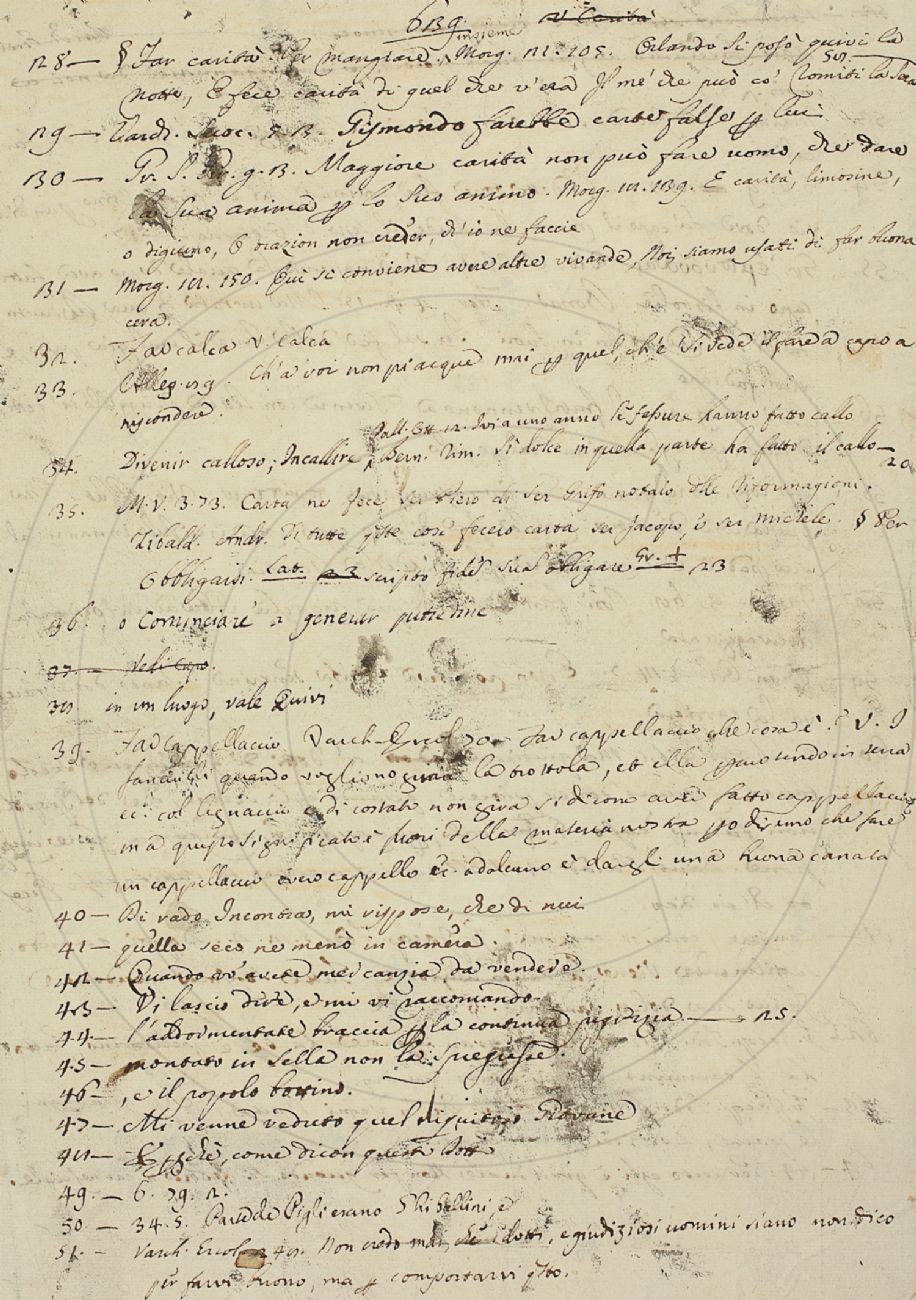 639 v. Carità
128 — § Far carità. Per mangiare insieme. Morg. 21. 105. Orlando si posò quivi la
notte, E fece carità di quel che v'era Il me' che può co' romiti la sera
129 — Lasc. 5. 2. Gismondo farebbe carte false p lui
130 — g. 2. Maggiore carità non può fare uomo, che dare
la sua anima p lo suo amico. Morg. 18. 139. E carità, limosine,
o digiuno, O orazion non creder, ch'io ne faccia
131 — Morg. 18. 150. Qui si conviene avere altre vivande, Noi siamo usati di far buona
cera.
32. Far calca V. Calca
33. Alleg. 219. Ch'a voi non piacque mai p quel, ch'e' si vede il fare a capo a
niscondere.
34. Divenir calloso; Incallire. Ivi a uno anno le fessure hanno fatto callo
Bern. Rim. Sì dolce in quella parte ha fatto il callo — 20
35. M. V. 3. 73. Carta ne fece ser Piero di ser Grifo notaio delle riformagioni.
Zibald. Andr. Di tutte qste cose fecero carta ser Jacopo, o ser Michele. § Per
Obbligarsi. Lat. scripto fidem suam obligare Gr. + 23
36. o Cominciare a generar putredine
37. — Vedi capo.
38. in un luogo, vale Quivi
39. Far cappellaccio Varch. Ercol. 70. Far cappellaccio che cosa è? V. I
fanciulli quando vogliono girar la trottola, ed ella percotendo in terra
ec. col legnaccio e di costato non gira si dicono aver fatto cappellaccio
ma questo significato è fuori della materia nostra po diremo che fare
un cappellaccio ovvero cappello ec. ad alcuno è dargli una buona canata
40 — Di rado Incontra, mi rispose, che di nui
41 — quella seco ne menò in camera.
42 — Quando vo' avete mercanzia da vendere.
43 — Vi lascio dire, e mi vi raccomando.
44. — l'addormentate braccia p la continua pigrizia — 25.
45 — montato in sella non la spregiasse.
46 — , e il popolo bottino.
47 — Mi venne veduto quel Giovane
48 — E pchè, come dicon questi Dott
49. — 6. 79. 2.
50. — 34. 5. Parte de' Ghibellini, e
51. — Varch. Ercol. 48. Non credo mai che i dotti, e giudiziosi uomini siano non dico
per farvi buono, ma p comportarvi qsto.